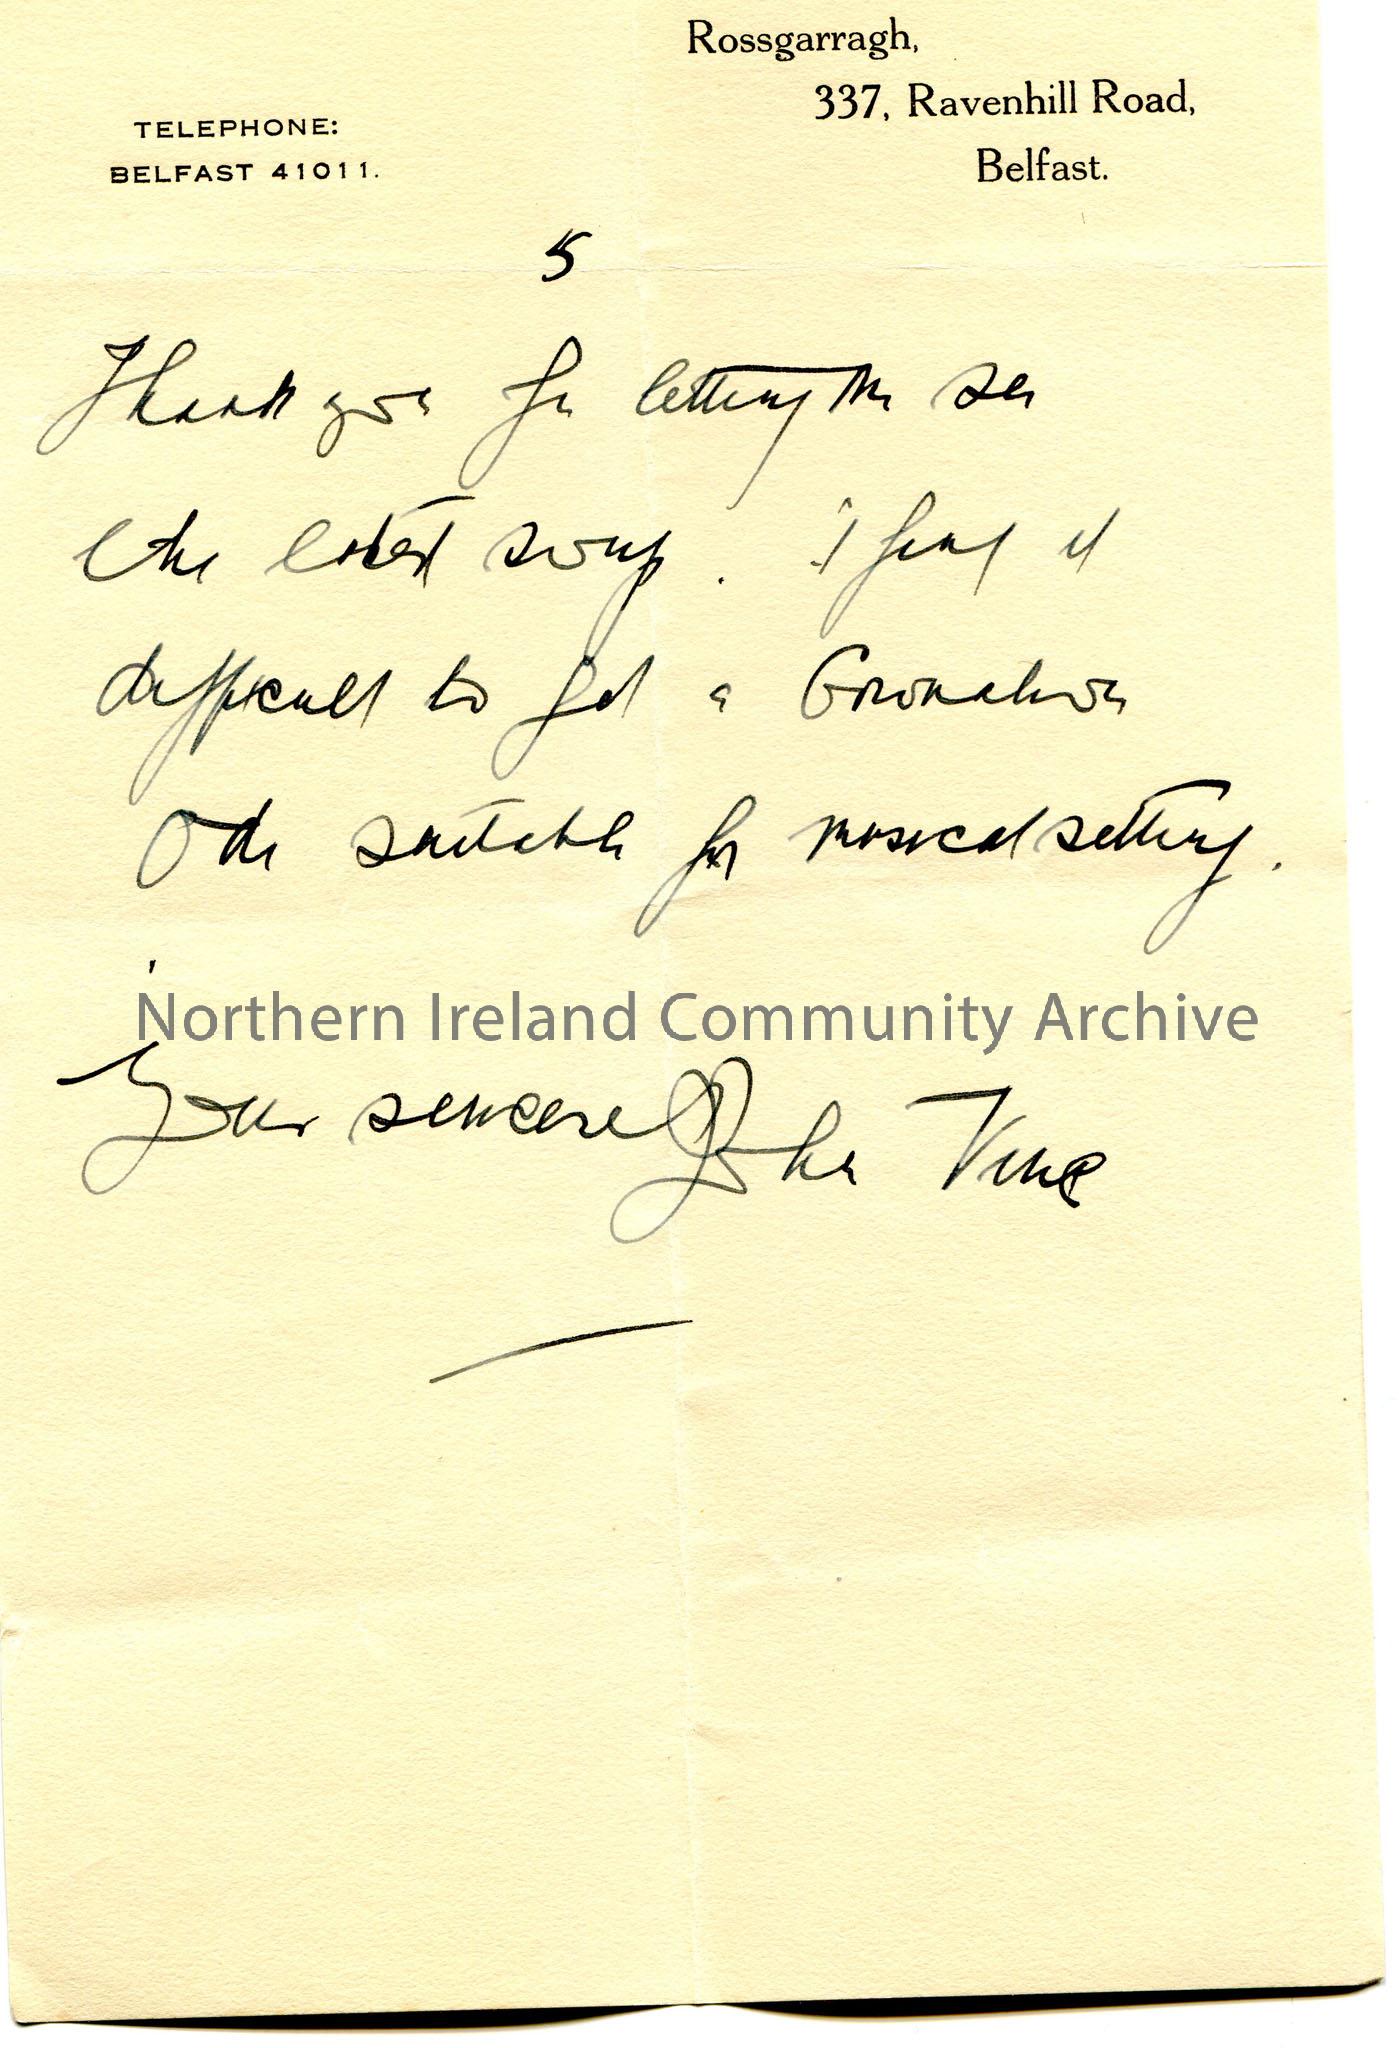 Rossgarragh,
337, Ravenhill Road,
Belfast.
TELEPHONE:
BELFAST 41011.
5
Thank you for letting me see
the latest song. I find it
difficult to get a Coronation
Ode suitable for musical setting.
Northern Ireland Community Archive
Yours sincerely John Vine